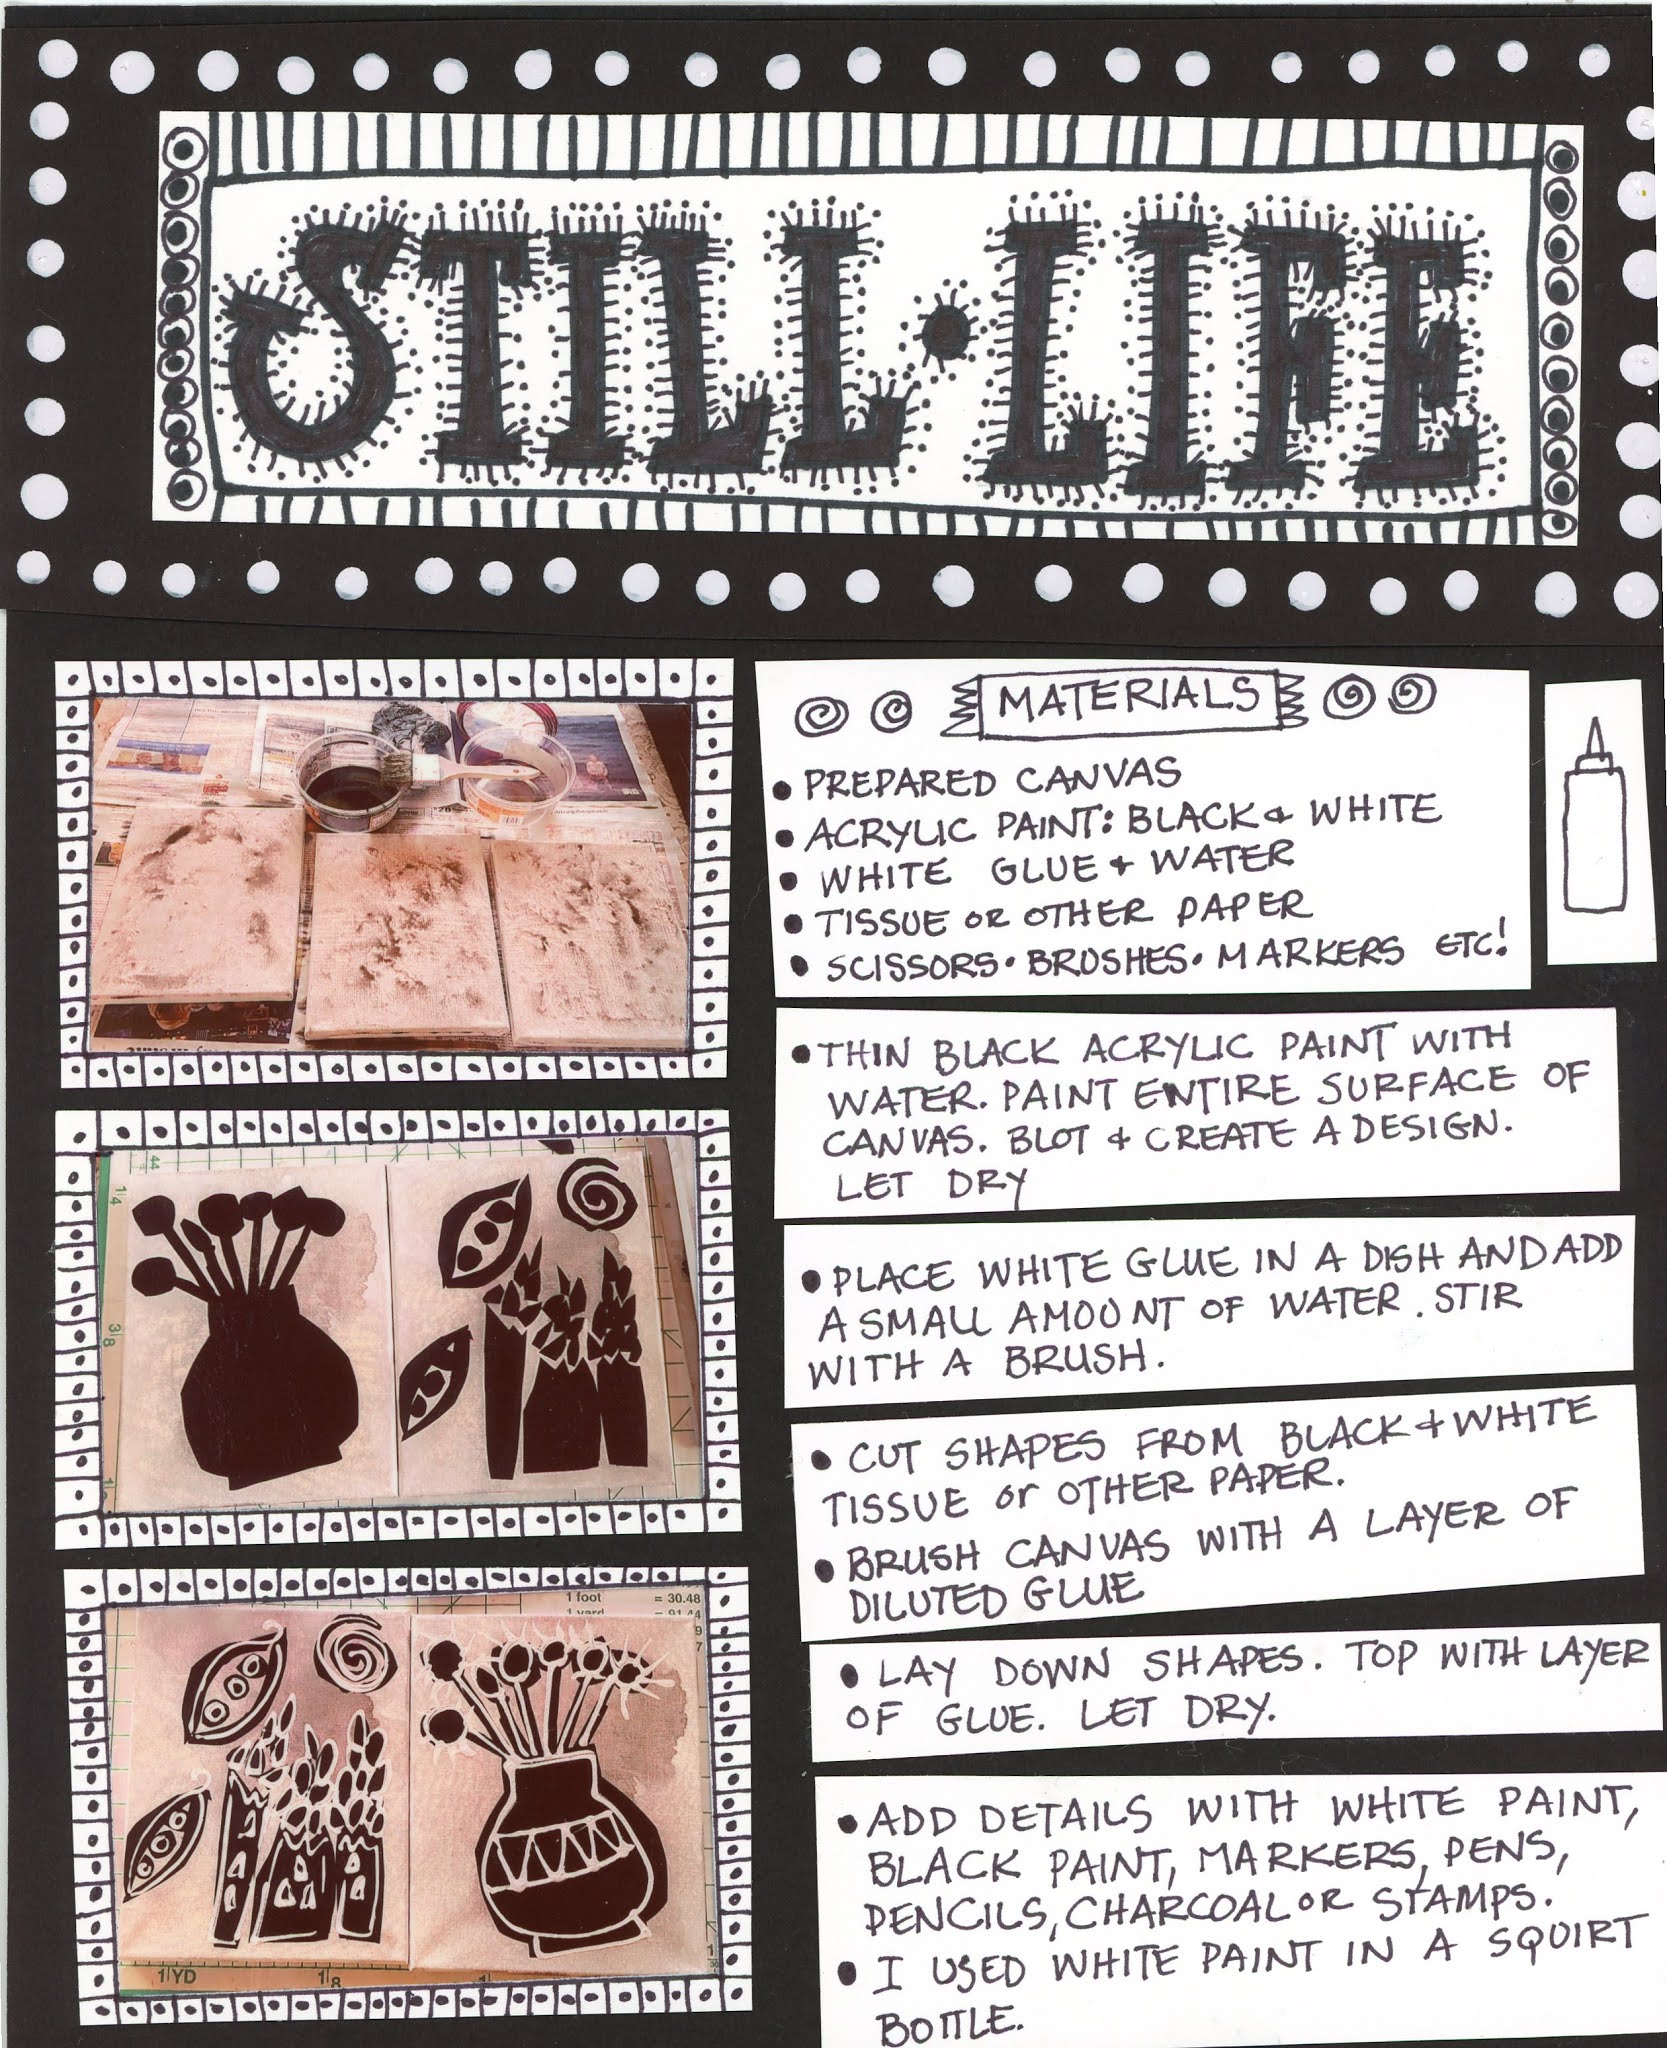 STILL·LIFE
MATERIALS
• PREPARED CANVAS
• ACRYLIC PAINT: BLACK & WHITE
• WHITE GLUE & WATER
• TISSUE OR OTHER PAPER
• SCISSORS • BRUSHES • MARKERS ETC!
• THIN BLACK ACRYLIC PAINT WITH
WATER. PAINT ENTIRE SURFACE OF
CANVAS. BLOT & CREATE A DESIGN.
LET DRY
• PLACE WHITE GLUE IN A DISH AND ADD
A SMALL AMOUNT OF WATER. STIR
WITH A BRUSH.
• CUT SHAPES FROM BLACK & WHITE
TISSUE or OTHER PAPER.
• BRUSH CANVAS WITH A LAYER OF
DILUTED GLUE
1 foot = 30.48
1 yard = 91.44
• LAY DOWN SHAPES. TOP WITH LAYER
OF GLUE. LET DRY.
• ADD DETAILS WITH WHITE PAINT,
BLACK PAINT, MARKERS, PENS,
PENCILS, CHARCOAL OR STAMPS.
• I USED WHITE PAINT IN A SQUIRT
BOTTLE.
1 YD 1/8